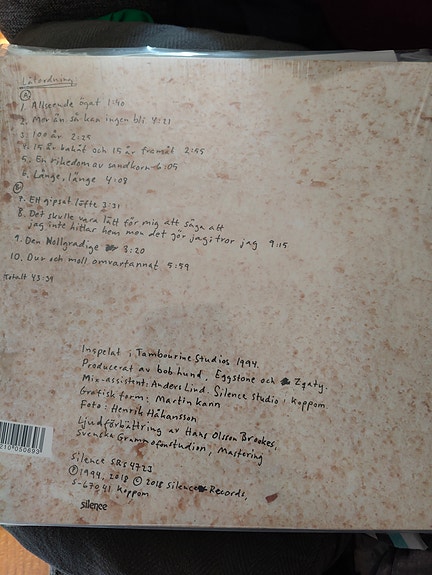 Låtordning
A
1. Allseende ögat 1:40
2. Mer än så kan ingen bli 4:21
3. 100 år 2:25
4. 15 år bakåt och 15 år framåt 2:55
5. En rikedom av sandkorn 6:05
6. Länge, länge 4:08
B
7. Ett gipsat löfte 3:31
8. Det skulle vara lätt för mig att säga att
jag inte hittar hem men det gör jag; tror jag 9:15
9. Den Nollgradige 3:20
10. Dur och moll omvartannat 5:59
Totalt 43:39
Inspelat i Tambourine Studios 1994.
Producerat av bob hund, Eggstone och Zqaty.
Mix-assistent: Anders Lind. Silence studio i Koppom
Grafisk form: Martin Kann
Foto: Henrik Håkansson
Ljudförbättring av Hans Olsson Brookes,
Svenska Grammofonstudion, Mastering
Silence SRS 4723
Ⓟ 1994, 2018 © 2018 Silence Records,
S-670 41 Koppom
silence
210050693